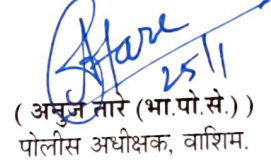 Hare
25/1
( अनुज तारे (भा.पो.से.) )
पोलीस अधीक्षक, वाशिम.